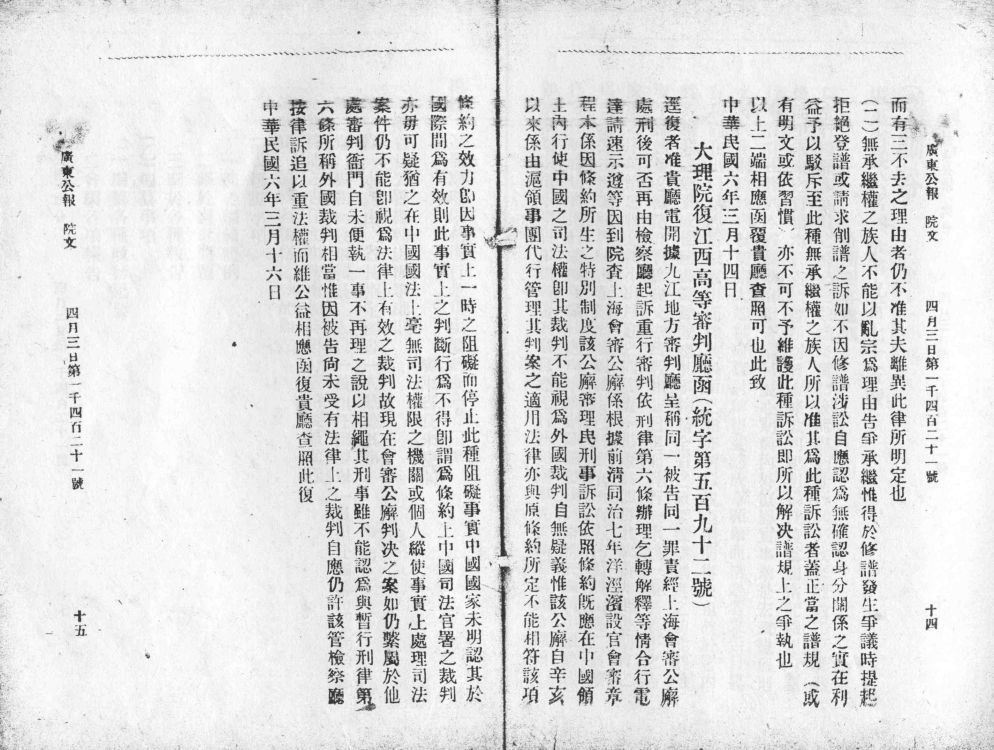 廣東公報 院文 四月三日第一千四百二十一號 十四
而有三不去之理由者仍不准其夫離異此律所明定也
(二)無承繼權之族人不能以亂宗爲理由吿爭承繼惟得於修譜發生爭議時提起
拒絕登譜或請求削譜之訴如不因修譜涉訟自應認爲無確認身分關係之實在利
益予以駁斥至此種無承繼權之族人所以准其爲此種訴訟者蓋正當之譜規(或
有明文或依習慣)亦不可不予維護此種訴訟即所以解決譜規上之爭執也
以上二端相應函覆貴廳查照可也此致
中華民國六年三月十四日
大理院復江西高等審判廳函(統字第五百九十二號)
逕復者准貴廳電開據九江地方審判廳呈稱同一被吿同一罪責經上海會審公廨
處刑後可否再由檢察廳起訴重行審判依刑律第六條辦理乞轉解釋等情合行電
達請速示遵等因到院查上海會審公廨係根據前淸同治七年洋涇濱設官會審章
程本係因條約所生之特別制度該公廨審理民刑事訴訟依照條約旣應在中國領
土內行使中國之司法權卽其裁判不能視爲外國裁判自無疑義惟該公廨自辛亥
以來係由滬領事團代行管理其判案之適用法律亦與原條約所定不能相符該項
條約之效力卽因事實上一時之阻礙而停止此種阻礙事實中國國家未明認其於
國際間爲有效則此事實上之判斷行爲不得卽謂爲條約上中國司法官署之裁判
亦毋可疑猶之在中國國法上毫無司法權限之機關或個人縱使事實上處理司法
案件仍不能卽視爲法律上有效之裁判故現在會審公廨判決之案如仍繫屬於他
處審判衙門自未便執一事不再理之說以相繩其刑事雖不能認爲與暫行刑律第
六條所稱外國裁判相當惟因被吿尙未受有法律上之裁判自應仍許該管檢察廳
按律訴追以重法權而維公益相應函復貴廳查照此復
中華民國六年三月十六日
廣東公報 院文 四月三日第一千四百二十一號 十五